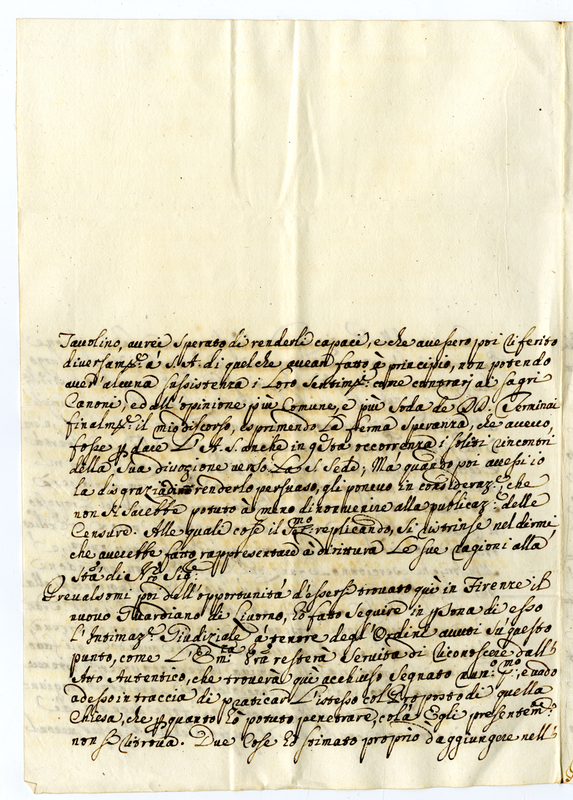 Tavolino, avrei sperato di renderli capaci, e che avessero poi riferito
diversam.te à S. A. di quel che avean fatto à principio, non potendo
aver' alcuna sussistenza i loro Sentim.ti come contrarj a' Sagri
Canoni, ed all'opinione più Comune, e più soda de DD. Terminai
finalm.te il mio discorso, esprimendo la ferma Speranza, che avevo,
fosse p dare L'A. S. anche in qsta occorrenza i soliti rincontri
della Sua divozione verso La S. Sede; Ma quando poi avessi io
la disgrazia di non renderlo persuaso, gli ponevo in consideraz.e, che
non si sarebbe potuto à meno di non venire alla publicaz.e delle
Censure. Alle quali cose il Ser.mo replicando, si ristrinse nel dirmi
che averebbe fatto rappresentare à dirittura Le sue ragioni alla
S.tà di N.ro Sig.re
Prevalsomi poi dell'opportunità d'essersi trovato quì in Firenze il
nuovo Guardiano di Livorno, hò fatto seguire in psona di esso
L'Intimaz.e Giudiziale à tenore degl'Ordini avuti su questo
punto, come L'Em.za V.ra resterà servita di riconoscere dall'
Atto Autentico, che troverà quì acchiuso segnato num.o p.mo; e vado
adesso in traccia di praticar L'istesso col Proposto di quella
Chiesa, che p quanto hò potuto penetrare, colà Egli presentem.te
non si ritrova. Due Cose hò stimato proprio d'aggiungere nell'